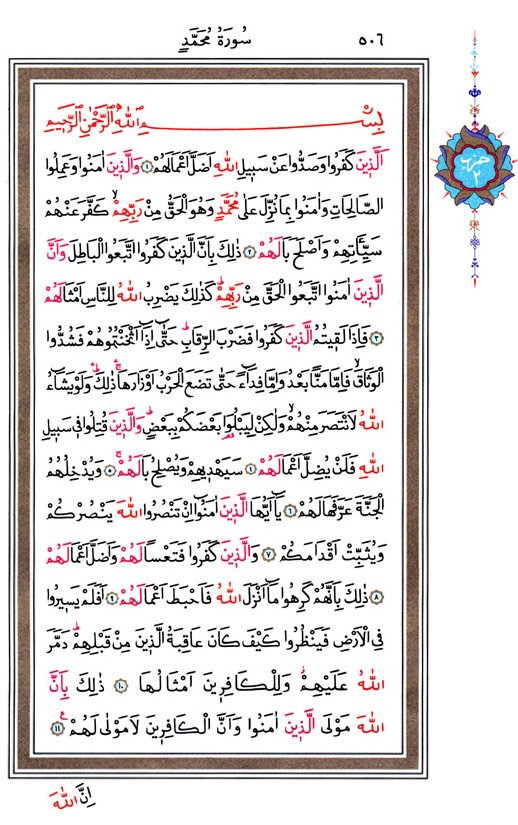 ٥٠٦ سُورَةُ مُحَمَّدٍ
حزب ٢
بِسْمِ اللّٰهِ الرَّحْمٰنِ الرَّحِيمِ
اَلَّذِينَ كَفَرُوا وَصَدُّوا عَنْ سَبِيلِ اللّٰهِ اَضَلَّ اَعْمَالَهُمْ ﴿١﴾ وَالَّذِينَ اٰمَنُوا وَعَمِلُوا
الصَّالِحَاتِ وَاٰمَنُوا بِمَا نُزِّلَ عَلٰى مُحَمَّدٍ وَهُوَ الْحَقُّ مِنْ رَبِّهِمْۙ كَفَّرَ عَنْهُمْ
سَيِّـَٔاتِهِمْ وَاَصْلَحَ بَالَهُمْ ﴿٢﴾ ذٰلِكَ بِاَنَّ الَّذِينَ كَفَرُوا اتَّبَعُوا الْبَاطِلَ وَاَنَّ
الَّذِينَ اٰمَنُوا اتَّبَعُوا الْحَقَّ مِنْ رَبِّهِمْۜ كَذٰلِكَ يَضْرِبُ اللّٰهُ لِلنَّاسِ اَمْثَالَهُمْ
﴿٣﴾ فَاِذَا لَقِيتُمُ الَّذِينَ كَفَرُوا فَضَرْبَ الرِّقَابِۜ حَتّٰٓى اِذَٓا اَثْخَنْتُمُوهُمْ فَشُدُّوا
الْوَثَاقَۙ فَاِمَّا مَنًّا بَعْدُ وَاِمَّا فِدَٓاءً حَتّٰى تَضَعَ الْحَرْبُ اَوْزَارَهَاۚ ذٰلِكَۜ وَلَوْ يَشَٓاءُ
اللّٰهُ لَانْتَصَرَ مِنْهُمْۙ وَلٰكِنْ لِيَبْلُوَ۬ا بَعْضَكُمْ بِبَعْضٍۜ وَالَّذِينَ قُتِلُوا فِي سَبِيلِ
اللّٰهِ فَلَنْ يُضِلَّ اَعْمَالَهُمْ ﴿٤﴾ سَيَهْدِيهِمْ وَيُصْلِحُ بَالَهُمْۚ ﴿٥﴾ وَيُدْخِلُهُمُ
الْجَنَّةَ عَرَّفَهَا لَهُمْ ﴿٦﴾ يَٓا اَيُّهَا الَّذِينَ اٰمَنُٓوا اِنْ تَنْصُرُوا اللّٰهَ يَنْصُرْكُمْ
وَيُثَبِّتْ اَقْدَامَكُمْ ﴿٧﴾ وَالَّذِينَ كَفَرُوا فَتَعْسًا لَهُمْ وَاَضَلَّ اَعْمَالَهُمْ
﴿٨﴾ ذٰلِكَ بِاَنَّهُمْ كَرِهُوا مَٓا اَنْزَلَ اللّٰهُ فَاَحْبَطَ اَعْمَالَهُمْ ﴿٩﴾ اَفَلَمْ يَسِيرُوا
فِي الْاَرْضِ فَيَنْظُرُوا كَيْفَ كَانَ عَاقِبَةُ الَّذِينَ مِنْ قَبْلِهِمْۜ دَمَّرَ
اللّٰهُ عَلَيْهِمْۘ وَلِلْكَافِرِينَ اَمْثَالُهَا ﴿١٠﴾ ذٰلِكَ بِاَنَّ
اللّٰهَ مَوْلَى الَّذِينَ اٰمَنُوا وَاَنَّ الْكَافِرِينَ لَا مَوْلٰى لَهُمْۚ ﴿١١﴾
اِنَّ اللّٰهَ